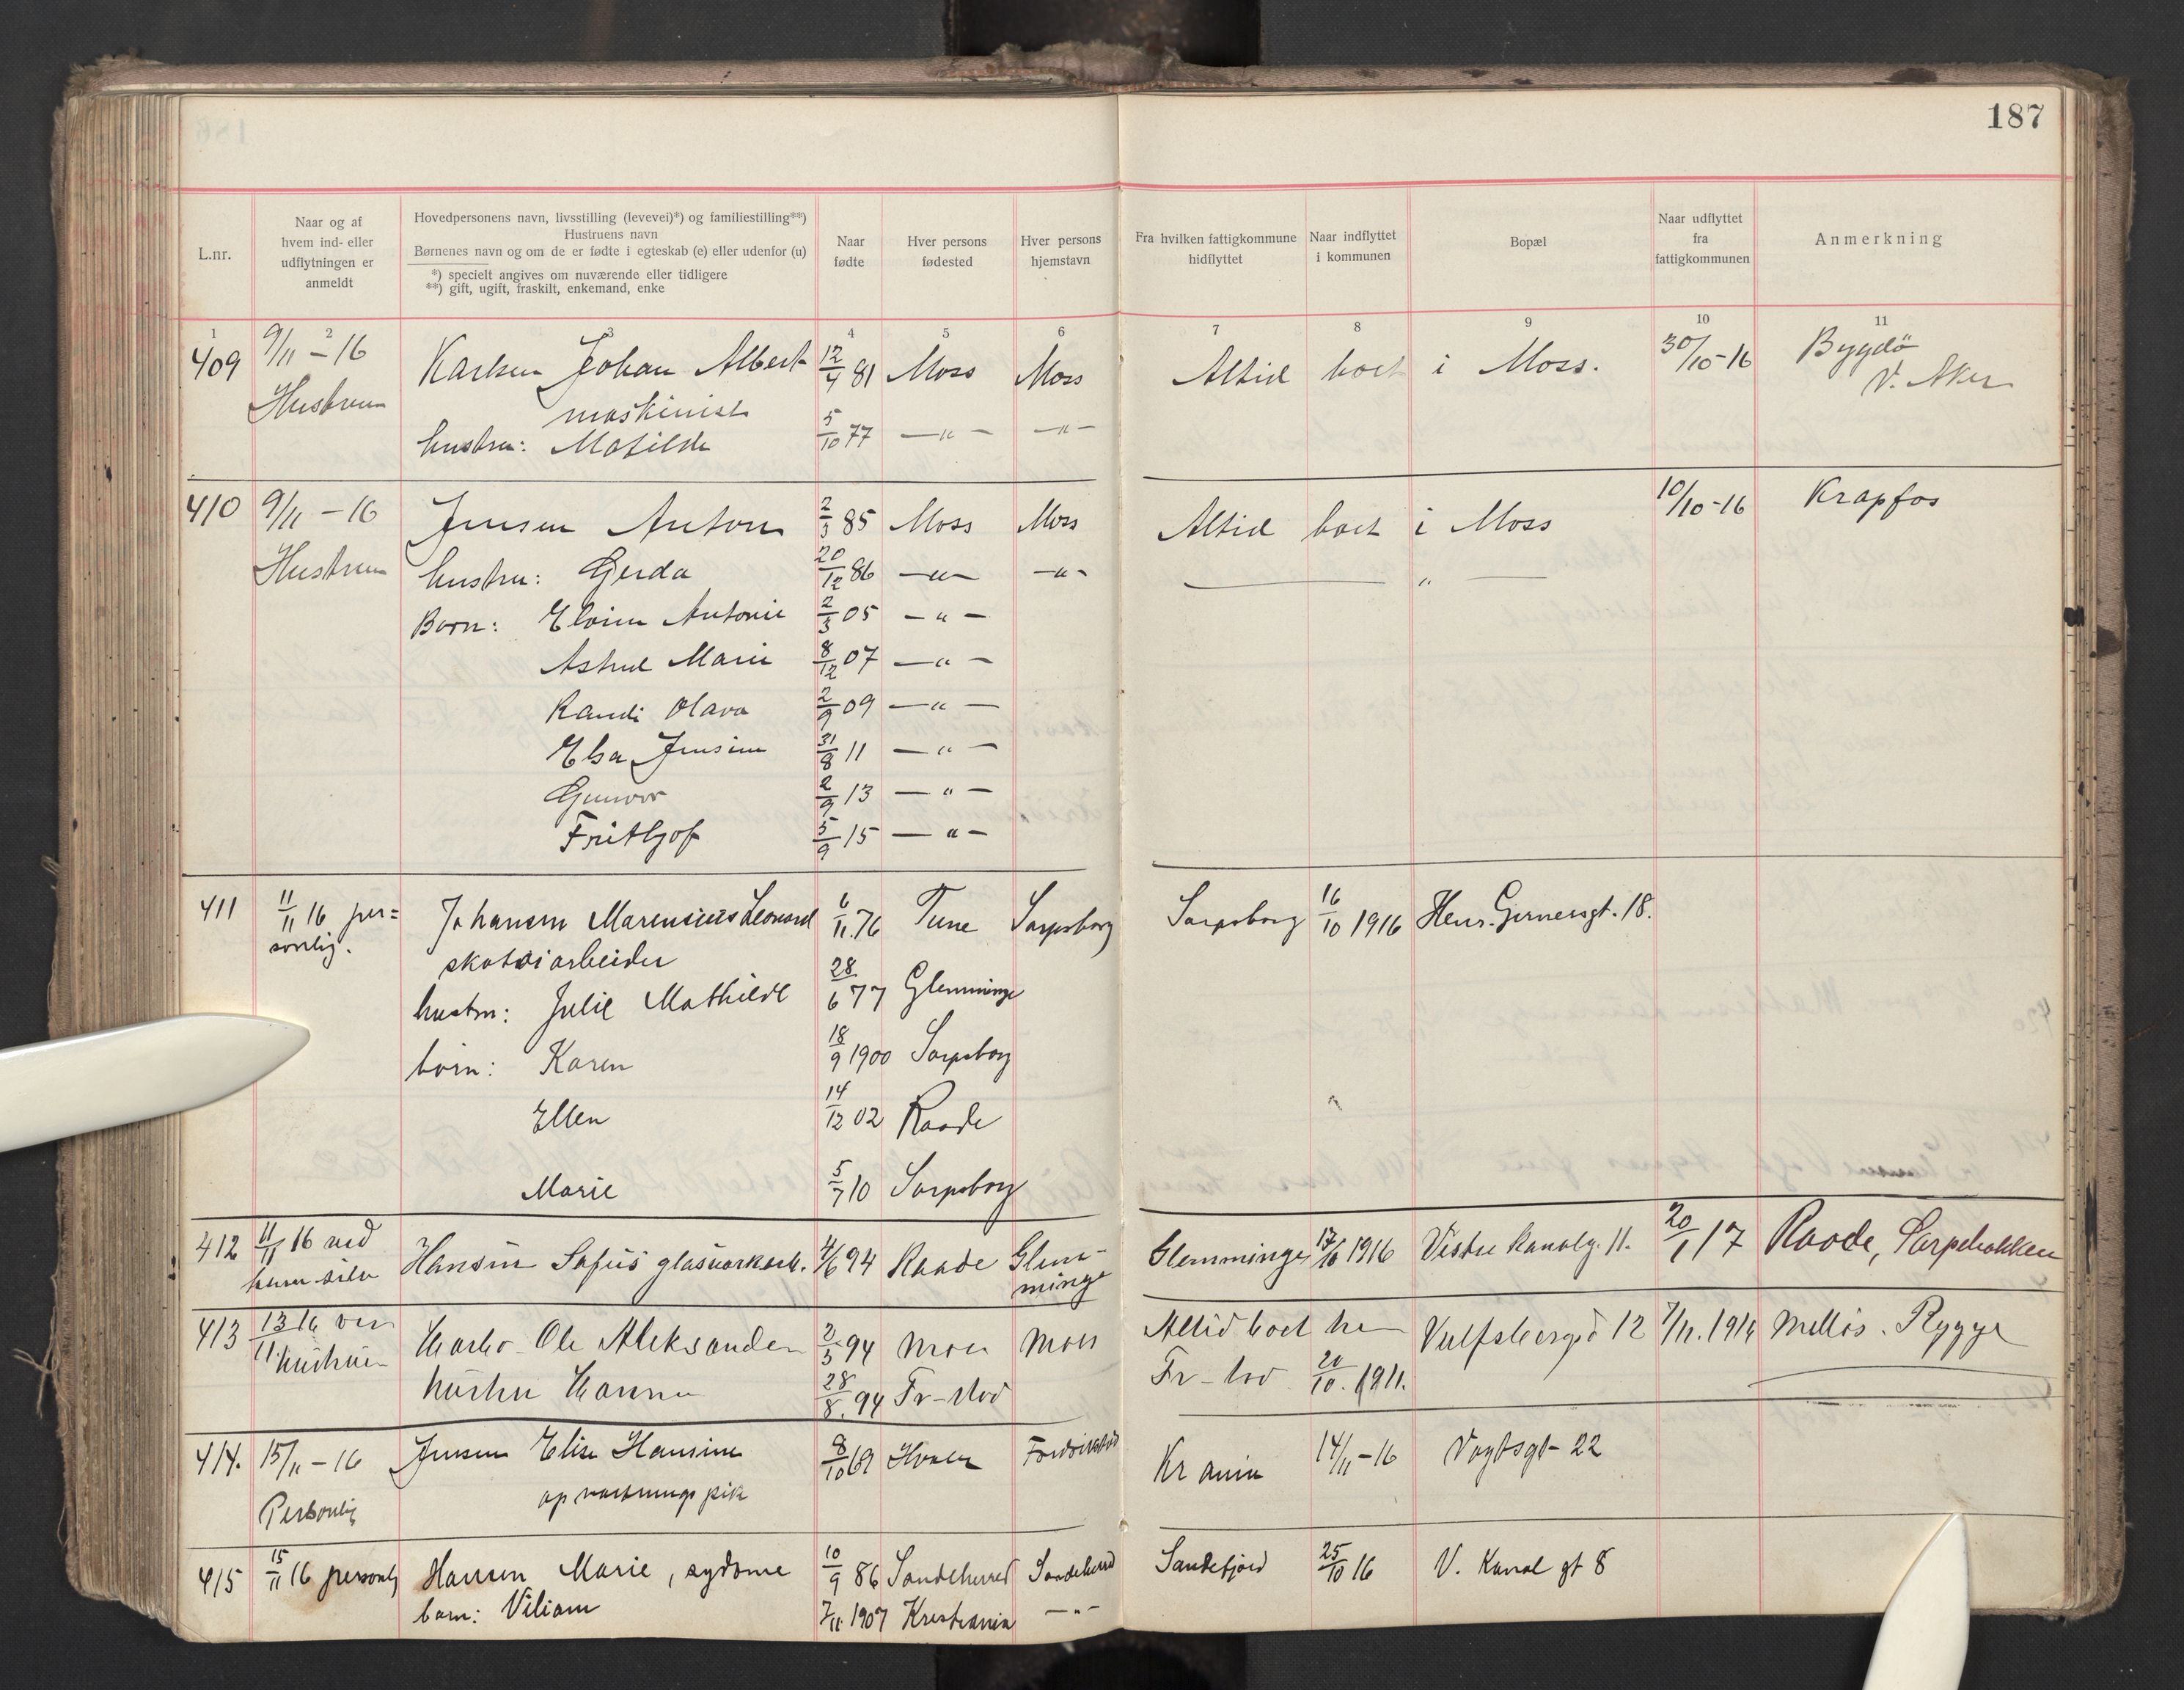 187
L.nr.
Naar og af
hvem ind- eller
udflytningen er
anmeldt
Hovedpersonens navn, livsstilling (levevei)*) og familiestilling**)
Hustruens navn
Børnenes navn og om de er fødte i egteskab (e) eller udenfor (u)
*) specielt angives om nuværende eller tidligere
**) gift, ugift, fraskilt, enkemand, enke
Naar
fødte
Hver persons
fødested
Hver persons
hjemstavn
Fra hvilken fattigkommune
hidflyttet
Naar indflyttet
i kommunen
Bopæl
Naar udflyttet
fra
fattigkommunen
Anmerkning
1 2 3 4 5 6 7 8 9 10 11
409 9/11 - 16 Karlsen Johan Albert 12/4 81 Moss Moss Altid boet i Moss. 30/10-16 Bygdö
Hustruen maskinist V. Aker
hustru: Matilde 5/10 77 —"— —"—
410 9/11 - 16 Jensen Anton 2/3 85 Moss Moss Altid boet i Moss 10/10-16 Krapfos
Hustruen hustru: Gerda 20/12 86 —"— —"— — " —
Børn: Antonie 2/3 05 —"—
Astrid Marie 8/12 07 —"—
Randi Olava 2/9 09 —"—
Elsa Jensine 31/8 11 —"—
Gunvor 2/9 13 —"—
Frithjof 5/9 15 —"—
411 11/11 16 per= Johansen Marensius Leonard 6/11.76 Tune Sarpsborg Sarpsborg 16/10 1916 Henr. Gernersgt. 18.
sonlig. skotøiarbeider
hustru: Julie Mathilde 28/6 77 Glemminge
børn: Karen 18/9 1900 Sarpsborg
Ellen 14/12 02 Raade
Marie 5/7 10 Sarpsborg
412 11/11 16 ved Hansen Sofus glasverkarb. 4/6 94 Raade Glem- Glemminge 17/10 1916 Vestre Kanalg. 11. 20/1 17 Raade, Sarpebakken
ham selv minge
413 13/11 16 ved Ole Aleksander 2/5 94 Moss Moss Altid boet her Vulfsbergsg 12 7/11.1916 Melløs. Rygge
hustruen hustru Hanna 28/8. 94 Fr-stad Fr-stad 20/10. 1911.
414. 15/11 - 16 Jensen Elise Hansine 8/10 69 Hvaler Fredrikstad Kr ania 14/11-16 Vogtsgt- 22
Personlig opvartningspike
415 15/11 16 personlig Hansen Marie, sydame 10/9 86 Sandeherred Sandeherred Sandefjord 25/10 16 V. Kanal gt 8
barn: Viliam 7/11 1907 Kristiania —"—